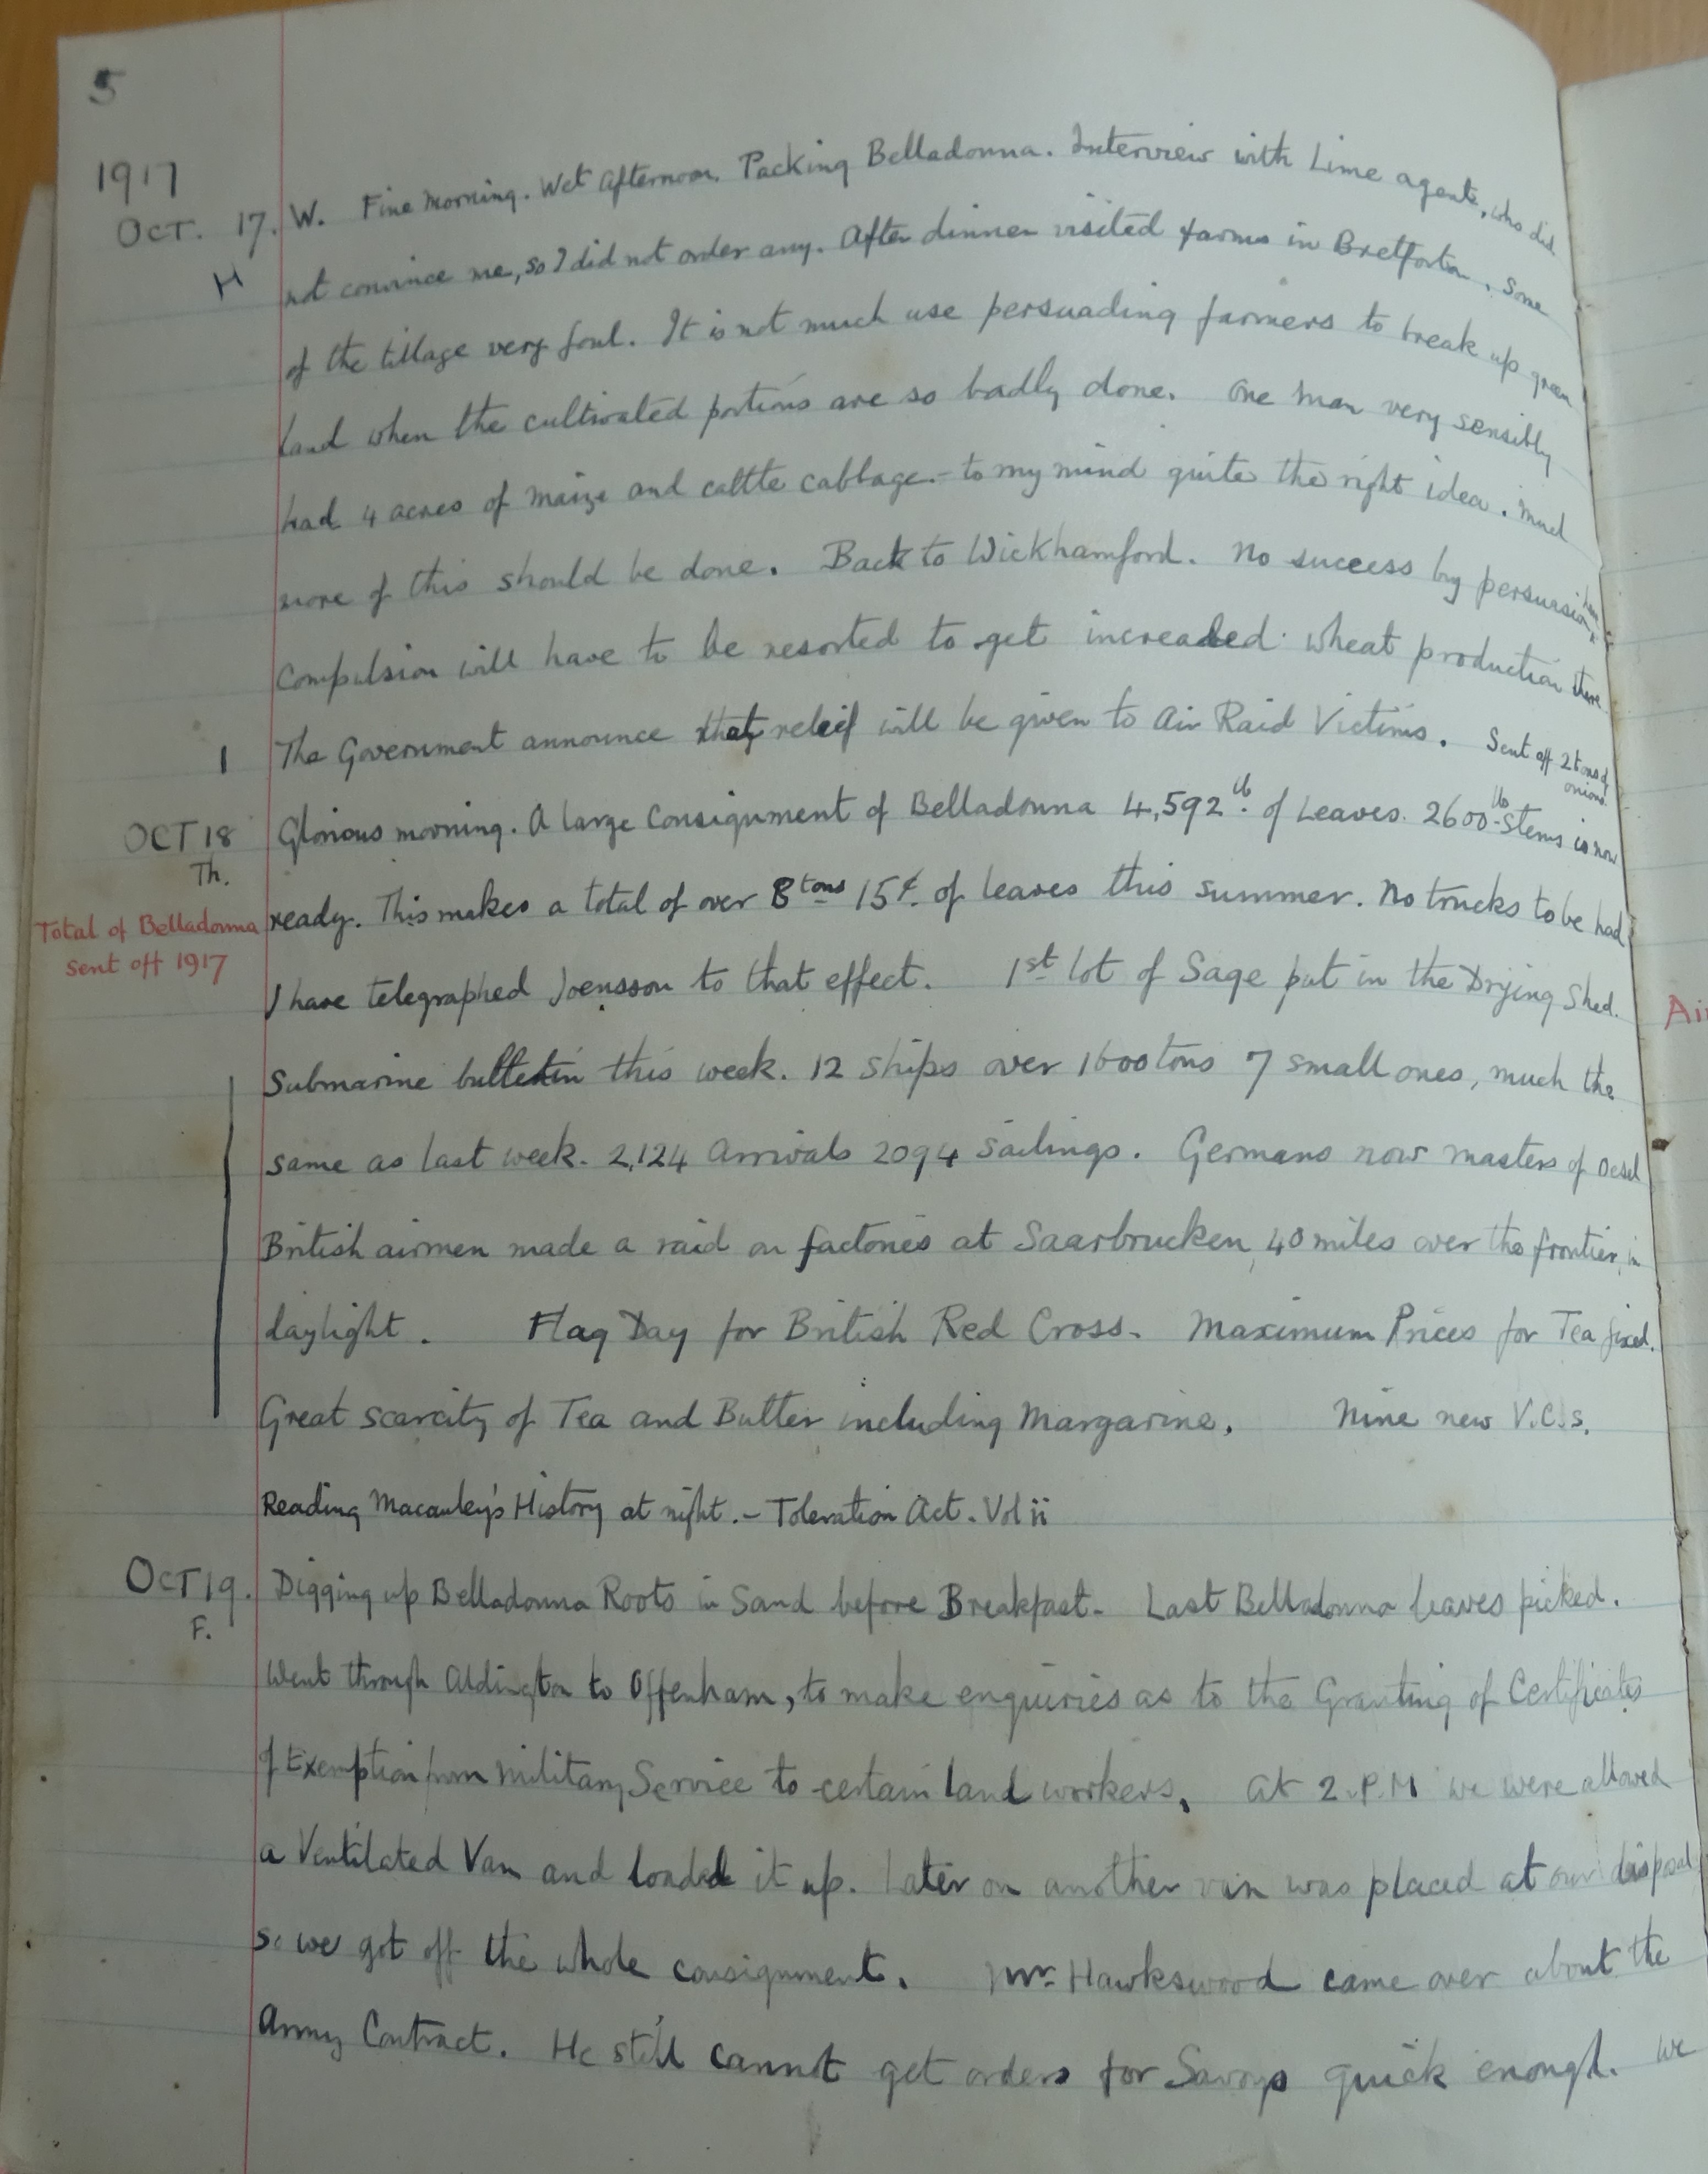 5
1917
OCT. 17. W. Fine morning. Wet afternoon. Packing Belladonna. Interview with Lime agents, who did
H not convince me, so I did not order any. After dinner visited farms in Bretforton, some
of the tillage very foul. It is not much use persuading farmers to break up green
land when the cultivated portions are so badly done. One man very sensibly
had 4 acres of maize and cattle cabbage. - to my mind quite the right idea. Much
more of this should be done. Back to Wickhamford. No success by persuasion
Compulsion will have to be resorted to get increased wheat production there.
1 The Government announce that relief will be given to Air Raid Victims. Sent off 2 tons of
onions.
OCT 18 Glorious morning. A large consignment of Belladonna 4,592 lb. of Leaves. 2600 lb Stems is now
Th. ready. This makes a total of over 8 tons 15 c. of leaves this summer. No trucks to be had
Total of Belladonna
sent off 1917
I have telegraphed Joensson to that effect. 1st lot of Sage put in the Drying Shed.
Submarine bulletin this week. 12 ships over 1600 tons 7 small ones, much the
same as last week. 2,124 Arrivals 2094 Sailings. Germans now masters of Oesel
British airmen made a raid on factories at Saarbrucken, 40 miles over the frontier, in
daylight. Flag Day for British Red Cross. Maximum Prices for Tea fixed.
Great scarcity of Tea and Butter including Margarine. Nine new V.C.s.
Reading Macauley's History at night. - Toleration Act. Vol ii
OCT 19. Digging up Belladonna Roots in Sand before Breakfast. Last Belladonna leaves picked.
F.
Went through Aldington to Offenham, to make enquiries as to the Granting of Certificates
of Exemption from Military Service to certain land workers. At 2.P.M we were allowed
a Ventilated Van and loaded it up. Later on another van was placed at our disposal
so we got off the whole consignment. Mr. Hawkswood came over about the
Army Contract. He still cannot get orders for Savoys quick enough. We
Air